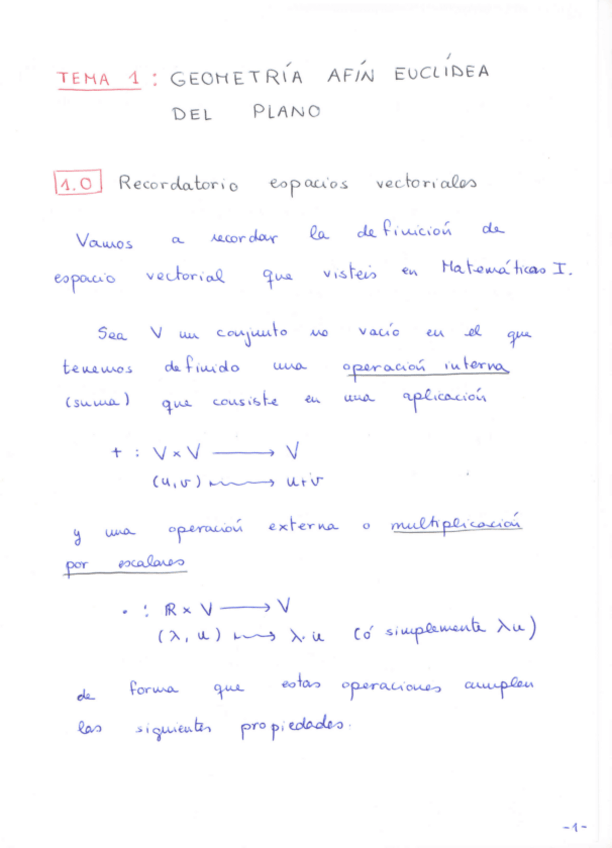 TEMA 1 : GEOMETRÍA AFÍN EUCLÍDEA
DEL PLANO
1.0 Recordatorio espacios vectoriales
Vamos a recordar la definición de
espacio vectorial que visteis en Matemáticas I.
Sea V un conjunto no vacío en el que
tenemos definido una operación interna
(suma) que consiste en una aplicación
+ : V × V ⟶ V
(u,v) ⟼ u+v
y una operación externa o multiplicación
por escalares
· : ℝ × V ⟶ V
(λ, u) ⟼ λ·u (ó simplemente λu)
de forma que estas operaciones cumplen
las siguientes propiedades.
-1-